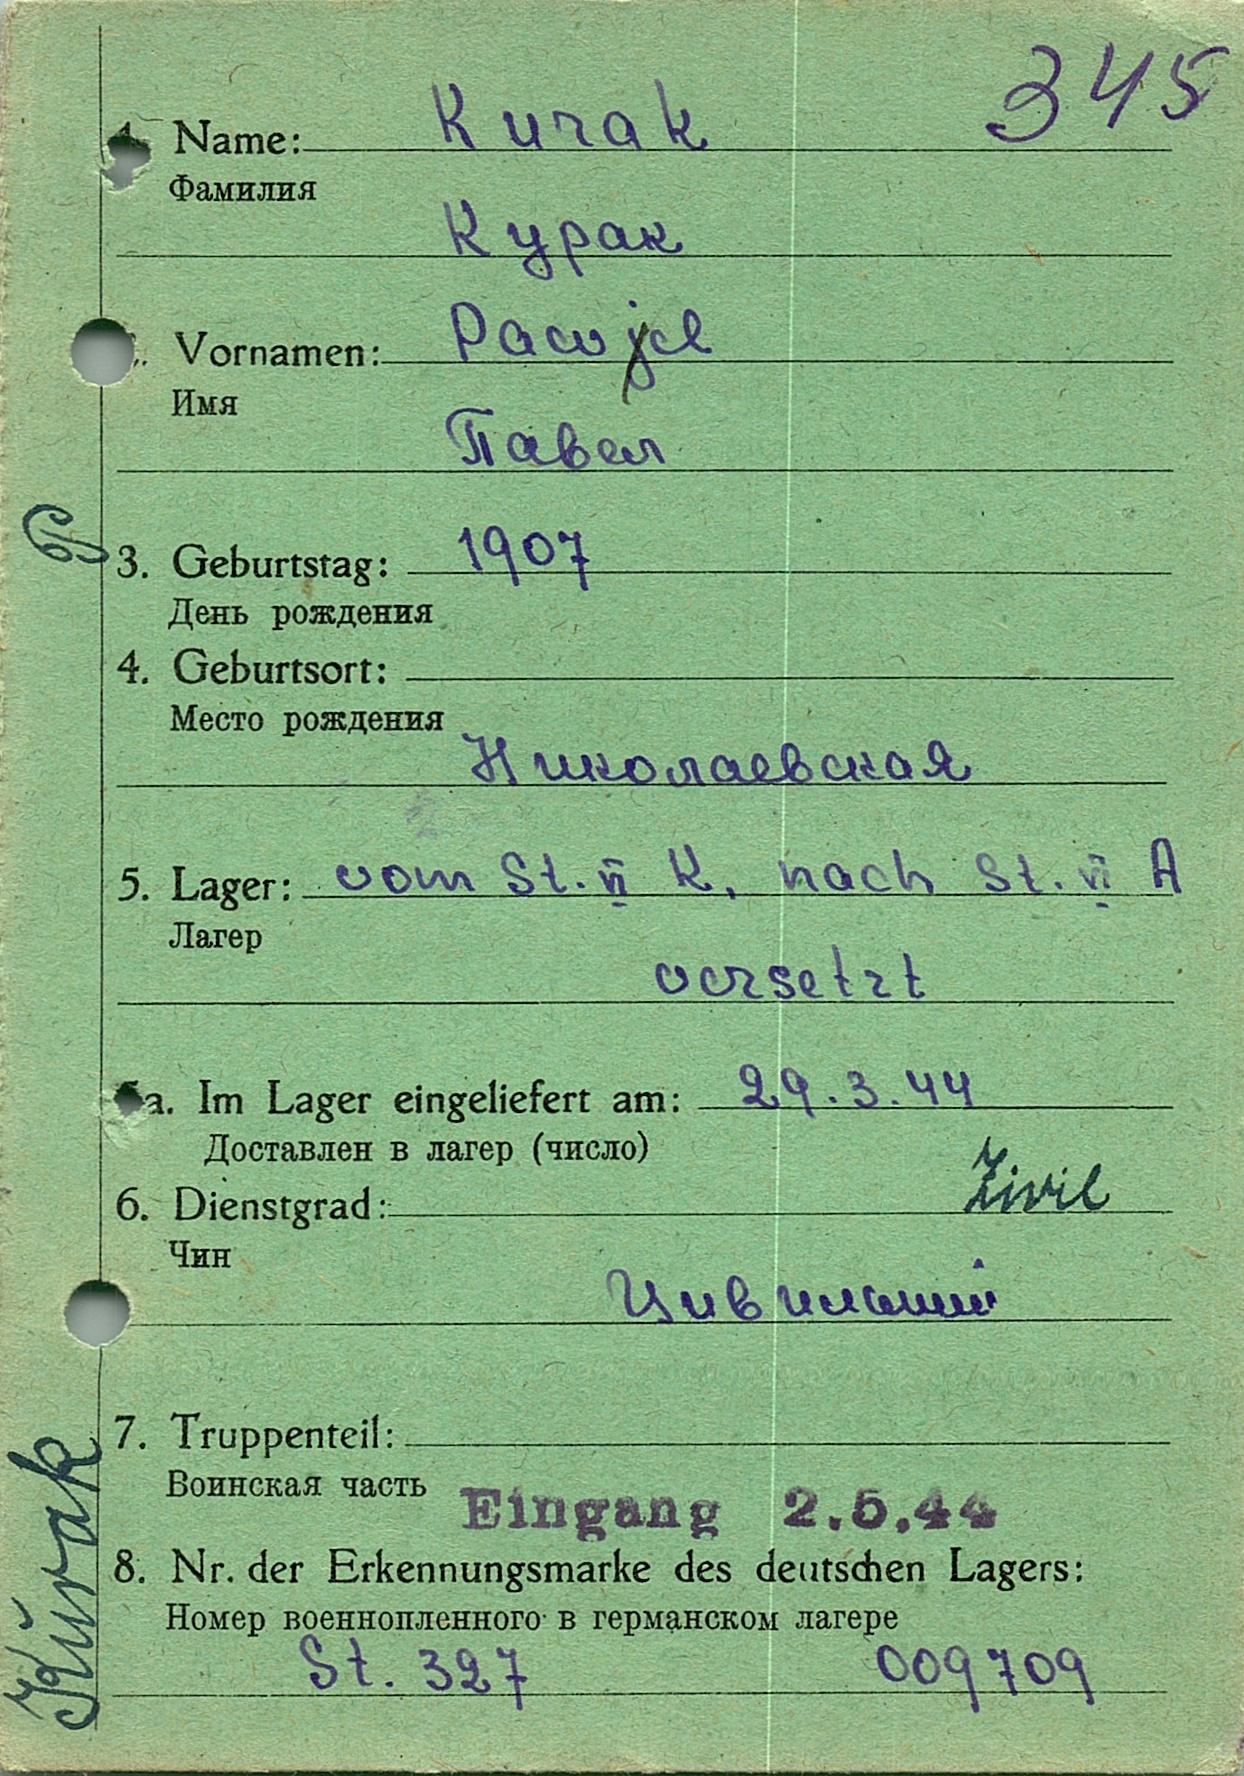 345
1. Name: Kurak
Фамилия
Курак
2. Vornamen: Pawjel
Имя
Павел
3. Geburtstag: 1907
День рождения
4. Geburtsort:
Место рождения
Николаевская
5. Lager: vom St. VI K, nach St. VI A
Лагер
versetzt
5a. Im Lager eingeliefert am: 29.3.44
Доставлен в лагер (число)
6. Dienstgrad: Zivil
Чин
7. Truppenteil:
Воинская часть
Eingang 2.5.44
8. Nr. der Erkennungsmarke des deutschen Lagers:
Номер военнопленного в германском лагере
St. 327 009709
Kŭrak